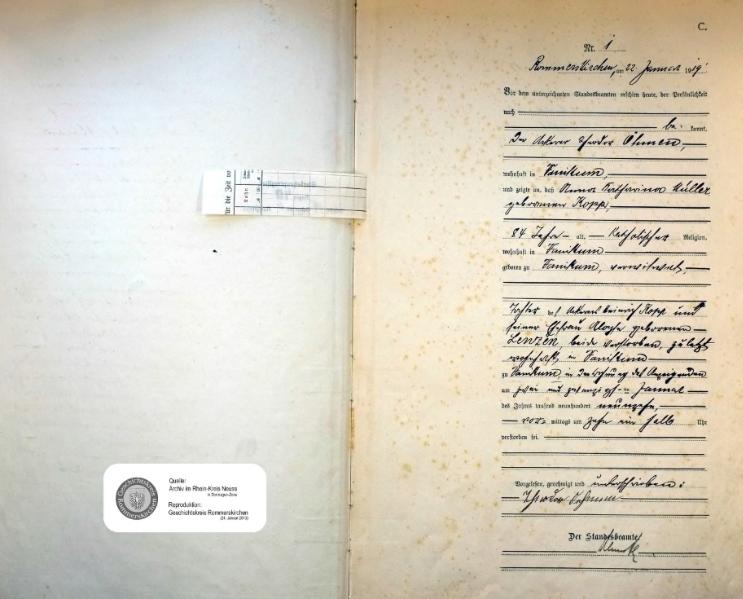 C.
Nr. 1
Rommerskirchen, am 22. Januar 1919
Vor dem unterzeichneten Standesbeamten erschien heute, der Persönlichkeit
nach
be- kannt,
Der Ackerer Theodor Öhmen,
wohnhaft in Vanikum,
und zeigte an, daß Anna Katharina Müller
geborenen Kopp,
84 Jahre alt, Katholischer Religion,
wohnhaft in Vanikum
geboren zu Vanikum, verwitwet,
Tochter des Ackerers Heinrich Kopp und
seiner Ehefrau geborenen
Lenzen, beide verstorben, zuletzt
wohnhaft in Vanikum
zu Vanikum, in der Wohnung des Anzeigenden
am zwei und zwanzigsten Januar
des Jahres tausend neunhundert neunzehn
vor- mittags um zehn ein halb Uhr
verstorben sei.
Vorgelesen, genehmigt und unterschrieben:
Theodor Oehmen
Der Standesbeamte
für die Zeit vo
Quelle:
Archiv im Rhein-Kreis Neuss
in Dormagen-Zons
Reproduktion:
Geschichtskreis Rommerskirchen